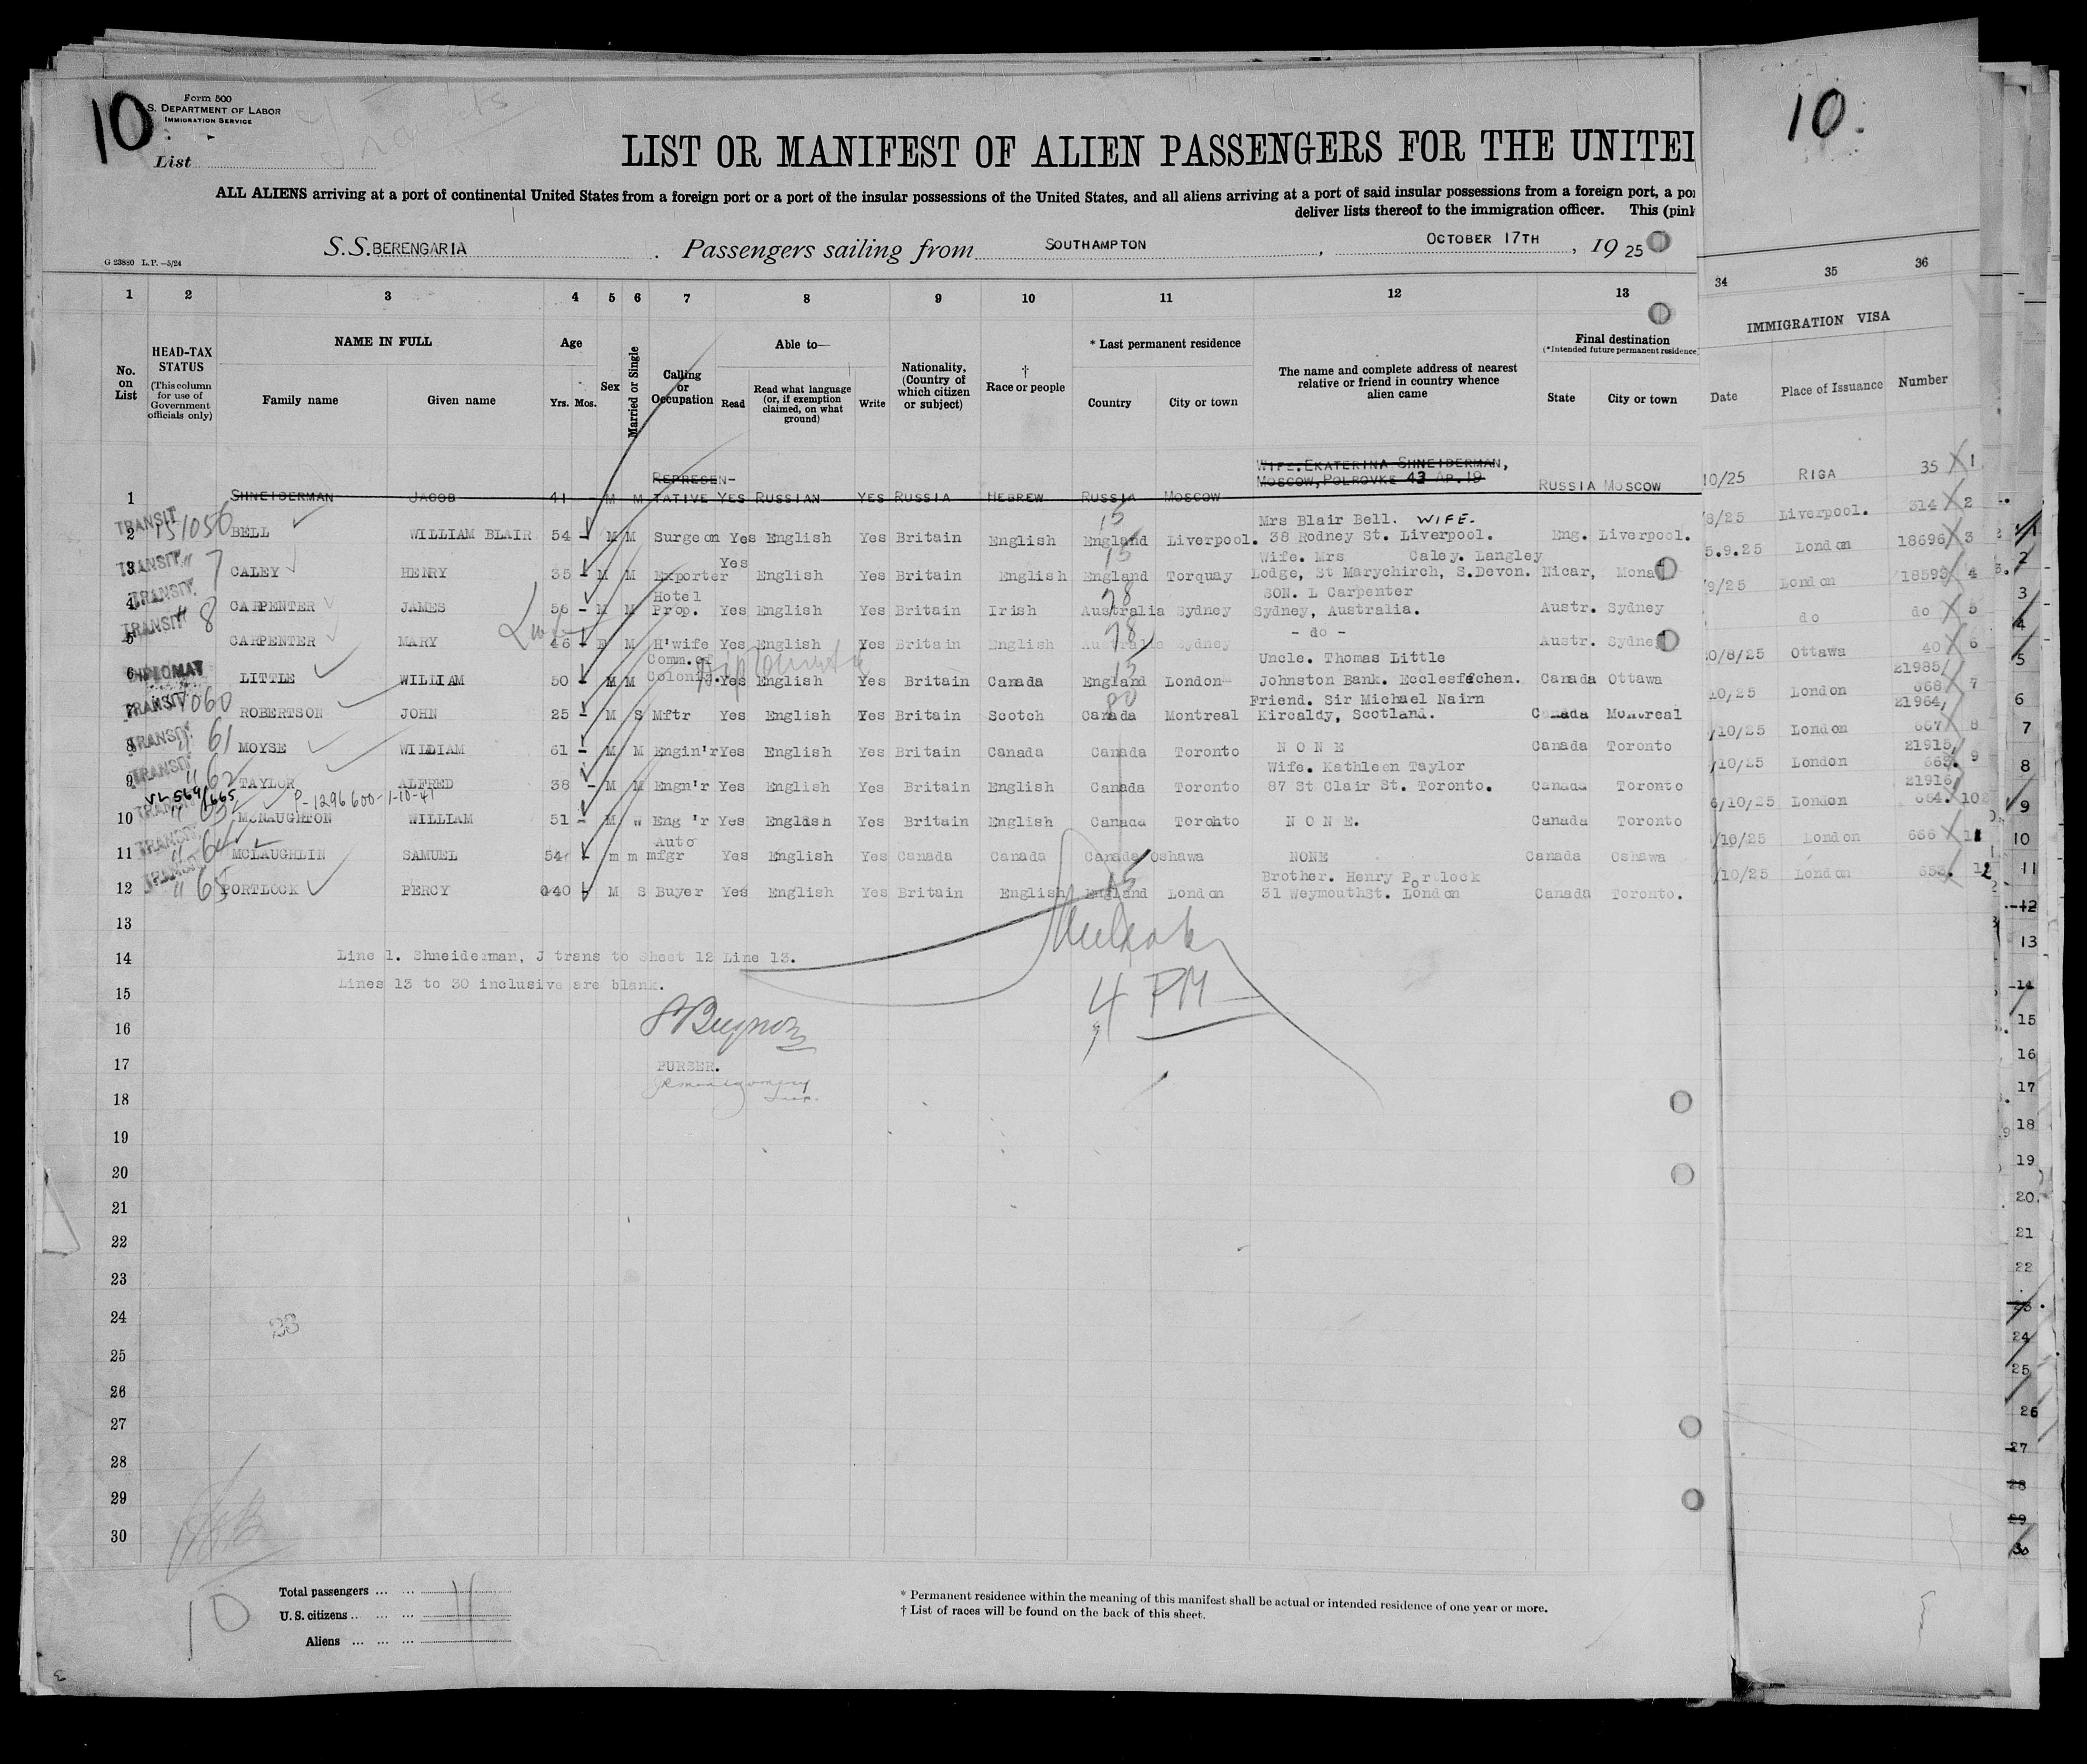 10
Form 500
S. DEPARTMENT OF LABOR
IMMIGRATION SERVICE
List
10.
LIST OR MANIFEST OF ALIEN PASSENGERS FOR THE UNITE
ALL ALIENS arriving at a port of continental United States from a foreign port or a port of the insular possessions of the United States, and all aliens arriving at a port of said insular possessions from a foreign port, a
deliver lists thereof to the immigration officer. This (pink
S.S. BERENGARIA . Passengers sailing from SOUTHAMPTON , OCTOBER 17TH , 19 25
G 23880 L.P. —5/24
1 2 3 4 5 6 7 8 9 10 11 12 13 34 35 36
No. on List
HEAD-TAX STATUS
(This column for use of Government officials only)
NAME IN FULL
Family name Given name
Age
Yrs. Mos.
Sex
Married or Single
Calling or Occupation
Able to—
Read
Read what language (or, if exemption claimed, on what ground)
Write
Nationality, (Country of which citizen or subject)
† Race or people
* Last permanent residence
Country City or town
The name and complete address of nearest relative or friend in country whence alien came
Final destination
(*Intended future permanent residence
State City or town
IMMIGRATION VISA
Date Place of Issuance Number
WIFE. EKATERINA SHNEIDERMAN,
REPRESEN- MOSCOW, POLROVKE 43 AP.19
1 SHNEIDERMAN JACOB 41 M M TATIVE YES RUSSIAN YES RUSSIA HEBREW RUSSIA MOSCOW RUSSIA MOSCOW 10/25 RIGA 35 1
15 Mrs Blair Bell. WIFE.
2 TRANSIT 151056 BELL WILLIAM BLAIR 54 - M M Surgeon Yes English Yes Britain English England Liverpool. 38 Rodney St. Liverpool. Eng. Liverpool. /8/25 Liverpool. 314 2
Yes 15 Wife. Mrs Caley. Langley
3 TRANSIT " 7 CALEY HENRY 35 - M M Exporter English Yes Britain English England Torquay Lodge, St Marychirch, S.Devon. Nicar, Mona 5.9.25 London 18696 3
Hotel 78 SON. L Carpenter
4 TRANSIT " 8 CARPENTER JAMES 56 - M M Prop. Yes English Yes Britain Irish Australia Sydney Sydney, Australia. Austr. Sydney /9/25 London 18593 4
78 - do -
5 TRANSIT CARPENTER MARY 46 - F M H'wife Yes English Yes Britain English Australia Sydney Austr. Sydney do do 5
Comm.of Diplomat 15 Uncle. Thomas Little
6 DIPLOMAT LITTLE WILLIAM 50 - M M Coloniz. Yes English Yes Britain Canada England London Johnston Bank. Ecclesfechen. Canada Ottawa 0/8/25 Ottawa 40 6
80 Friend. Sir Michael Nairn 21985/
7 TRANSIT 060 ROBERTSON JOHN 25 - M S Mftr Yes English Yes Britain Scotch Canada Montreal Kircaldy, Scotland. Canada Montreal 10/25 London 668 7
21964/
8 TRANSIT " 61 MOYSE WILLIAM 61 - M M Engin'r Yes English Yes Britain Canada Canada Toronto N O N E Canada Toronto /10/25 London 667 8
Wife. Kathleen Taylor 21915/
9 TRANSIT " 62 TAYLOR ALFRED 38 - M M Engn'r Yes English Yes Britain English Canada Toronto 87 St Clair St. Toronto. Canada Toronto /10/25 London 663. 9
VL 569/665 P-1296600-1-10-41 21916/
10 TRANSIT " 63 MCNAUGHTON WILLIAM 51 - M w Eng'r Yes English Yes Britain English Canada Toronto N O N E. Canada Toronto 6/10/25 London 664. 10
Auto
11 TRANSIT " 64 MCLAUGHLIN SAMUEL 54 - m m mfgr Yes English Yes Canada Canada Canada Oshawa NONE Canada Oshawa /10/25 London 666 11
15 Brother. Henry Portlock
12 TRANSIT " 65 PORTLOCK PERCY 40 M S Buyer Yes English Yes Britain English England London 31 WeymouthSt. London Canada Toronto. /10/25 London 653. 12
13
14 Line 1. Shneiderman, J trans to Sheet 12 Line 13.
15 Lines 13 to 30 inclusive are blank.
4 PM
16
17 PURSER.
JRMontgomery
18
19
20
21
22
23
24
23
25
26
27
28
29
30
10
Total passengers ... ... 11
U. S. citizens ... ... ...
Aliens ... ... ...
* Permanent residence within the meaning of this manifest shall be actual or intended residence of one year or more.
† List of races will be found on the back of this sheet.
1
2
3
4
5
6
7
8
9
10
11
12
13
14
15
16
17
18
19
20.
21
22
23
24
25
26
27
28
29
30